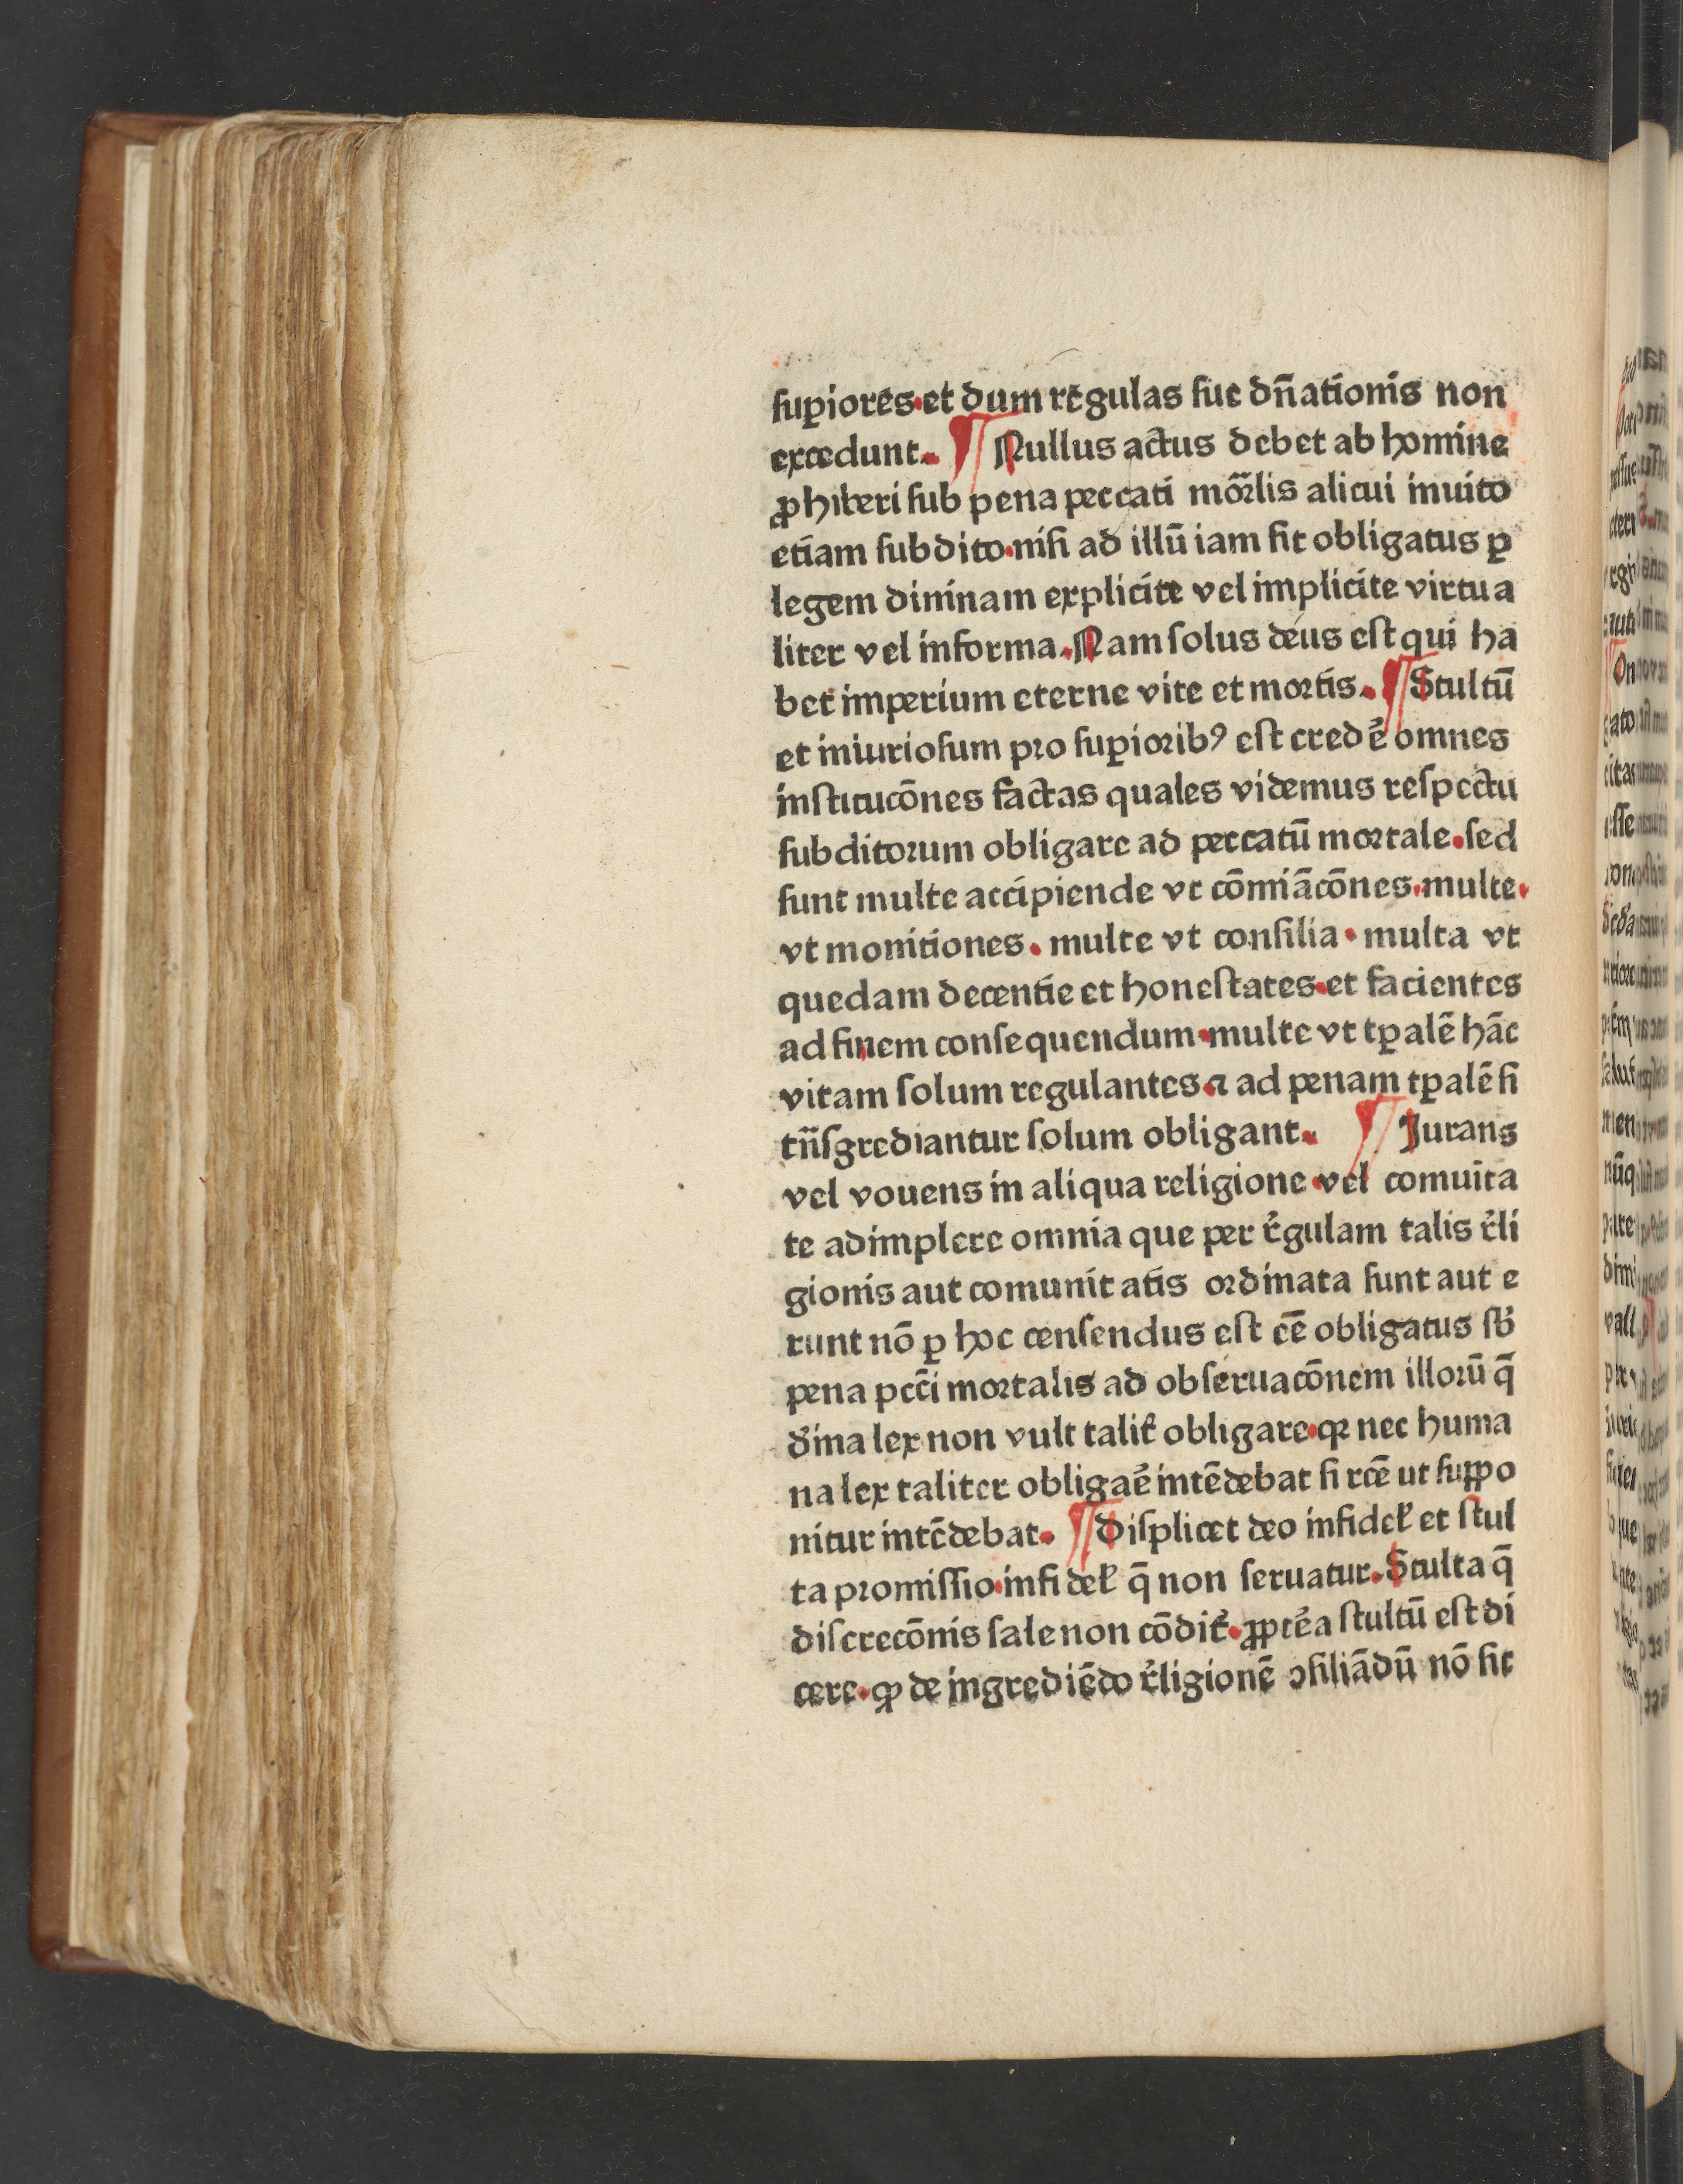 ſuꝑiores·et dum regulas ſue dn̄ationis non
excedunt. ¶ Nullus actus debet ab homine
ꝓhiberi ſub pena peccati mōrlis alicui inuito
etiam ſubdito·niſi ad illū iam ſit obligatus ꝑ
legem dininam explicite vel implicite virtua
liter vel informa.Nam ſolus deus eſt qui ha
bet imperium eterne vite et mortis. ¶ Stultū
et iniurioſum pro ſuꝑioribꝰ eſt crede᷑ omnes
inſtitucōnes factas quales videmus reſpectu
ſubditorum obligare ad peccatū mortale.ſed
ſunt multe accipiende vt cōmiācōnes·multe·
vt monitiones. multe vt conſilia· multa vt
quedam decentie et honeſtates·et facientes
ad finem conſequendum·multe vt tꝑalē hāc
vitam ſolum regulantes.⁊ ad penam tꝑalē ſi
tn̄ſgrediantur ſolum obligant. ¶ Jurans
vel vouens in aliqua religione·vel comuīta
te adimplere omnia que per r᷑gulam talis r᷑li
gionis aut comunitatis ordinata ſunt aut e
runt nō ꝑ hoc cenſendus eſt eē obligatus ſb᷑
pena pcc̄i mortalis ad obſeruacōnem illorū q̄
d᷑ina lex non vult talit᷑ obligare·qꝛ nec huma
na lex taliter obligae᷑ intēdebat ſi rc̄e ut ſuꝓpo
nitur intēdebat. ¶ Diſplicet deo infidel᷑ et ſtul
ta promiſſio·infidel᷑ q̄ non ſeruatur.Stulta q̄
diſcrecōnis ſale non cōdit᷑.ꝓpte᷑a ſtultū eſt di
cere·ꝙ de ingrediēdo r᷑ligionē ↄſiliādū nō ſit